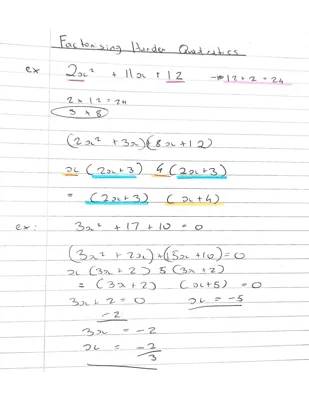 Factorising Harder Quadratics
ex 2x² + 11x + 12 → 12 × 2 = 24
2 × 12 = 24
3 + 8
(2x² + 3x) + (8x + 12)
x (2x+3) 4 (2x+3)
= (2x+3) (x+4)
ex: 3x² + 17 + 10 = 0
(3x² + 2x) + (15x + 10) = 0
x (3x+2) 5 (3x+2)
= (3x+2) (x+5) = 0
3x + 2 = 0 x = -5
-2
3x = -2
x = -2/3